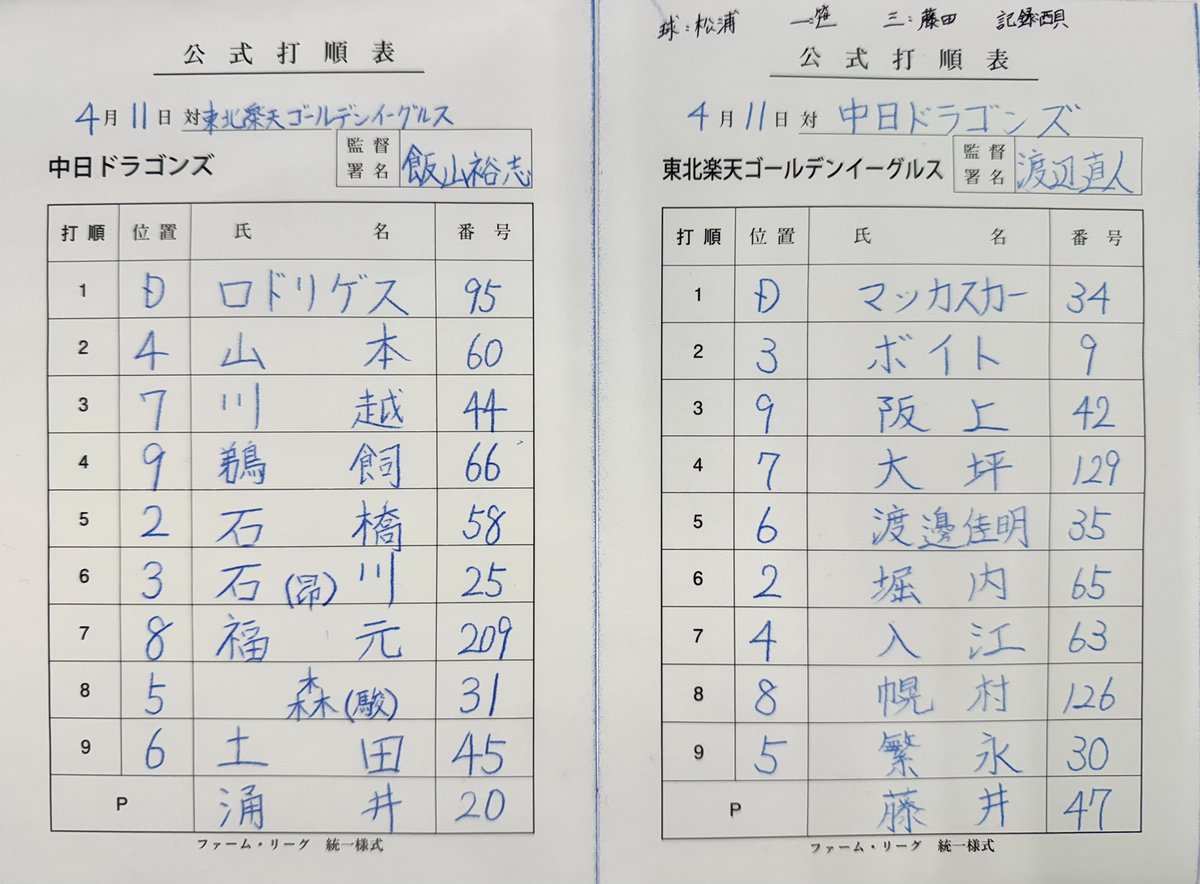 公式打順表
4月11日対東北楽天ゴールデンイーグルス
中日ドラゴンズ 監督署名 飯山裕志
打順 位置 氏名 番号
1 D ロドリゲス 95
2 4 山本 60
3 7 川越 44
4 9 鵜飼 66
5 2 石橋 58
6 3 石(昂)川 25
7 8 福元 209
8 5 森(駿) 31
9 6 土田 45
P 涌井 20
ファーム・リーグ 統一様式
球:松浦 一:笹 三:藤田 記録:西貝
公式打順表
4月11日対中日ドラゴンズ
東北楽天ゴールデンイーグルス 監督署名 渡辺直人
打順 位置 氏名 番号
1 D マッカスカー 34
2 3 ボイト 9
3 9 阪上 42
4 7 大坪 129
5 6 渡邊佳明 35
6 2 堀内 65
7 4 入江 63
8 8 幌村 126
9 5 繁永 30
P 藤井 47
ファーム・リーグ 統一様式